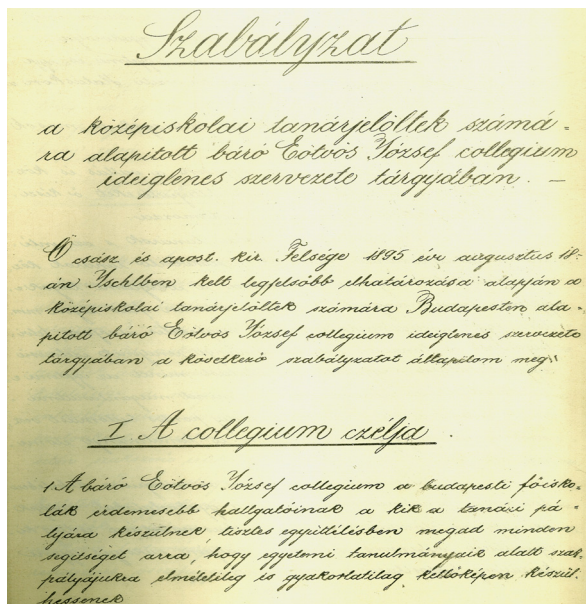 Szabályzat
a középiskolai tanárjelöltek számá-
ra alapitott báró Eötvös József collegium
ideiglenes szervezete tárgyában. —
Ő csász
és apost. kir. Felsége 1895 évi augusztus 18-
án Ischlben kelt legfelsőbb elhatározása alapján a
középiskolai tanárjelöltek számára Budapesten ala-
pitott báró Eötvös József collegium ideiglenes szervezete
tárgyában a következő szabályzatot állapitom meg:
I. A collegium czélja.
1. A báró Eötvös József collegium a budapesti főisko-
lák érdemesebb hallgatóinak a kik a tanári pá-
lyára készülnek, tisztes együttlésben megad minden
segitséget arra, hogy egyetemi tanulmányaik alatt szak-
pályájukra elméletileg és gyakorlatilag kellőképen készül-
hessenek